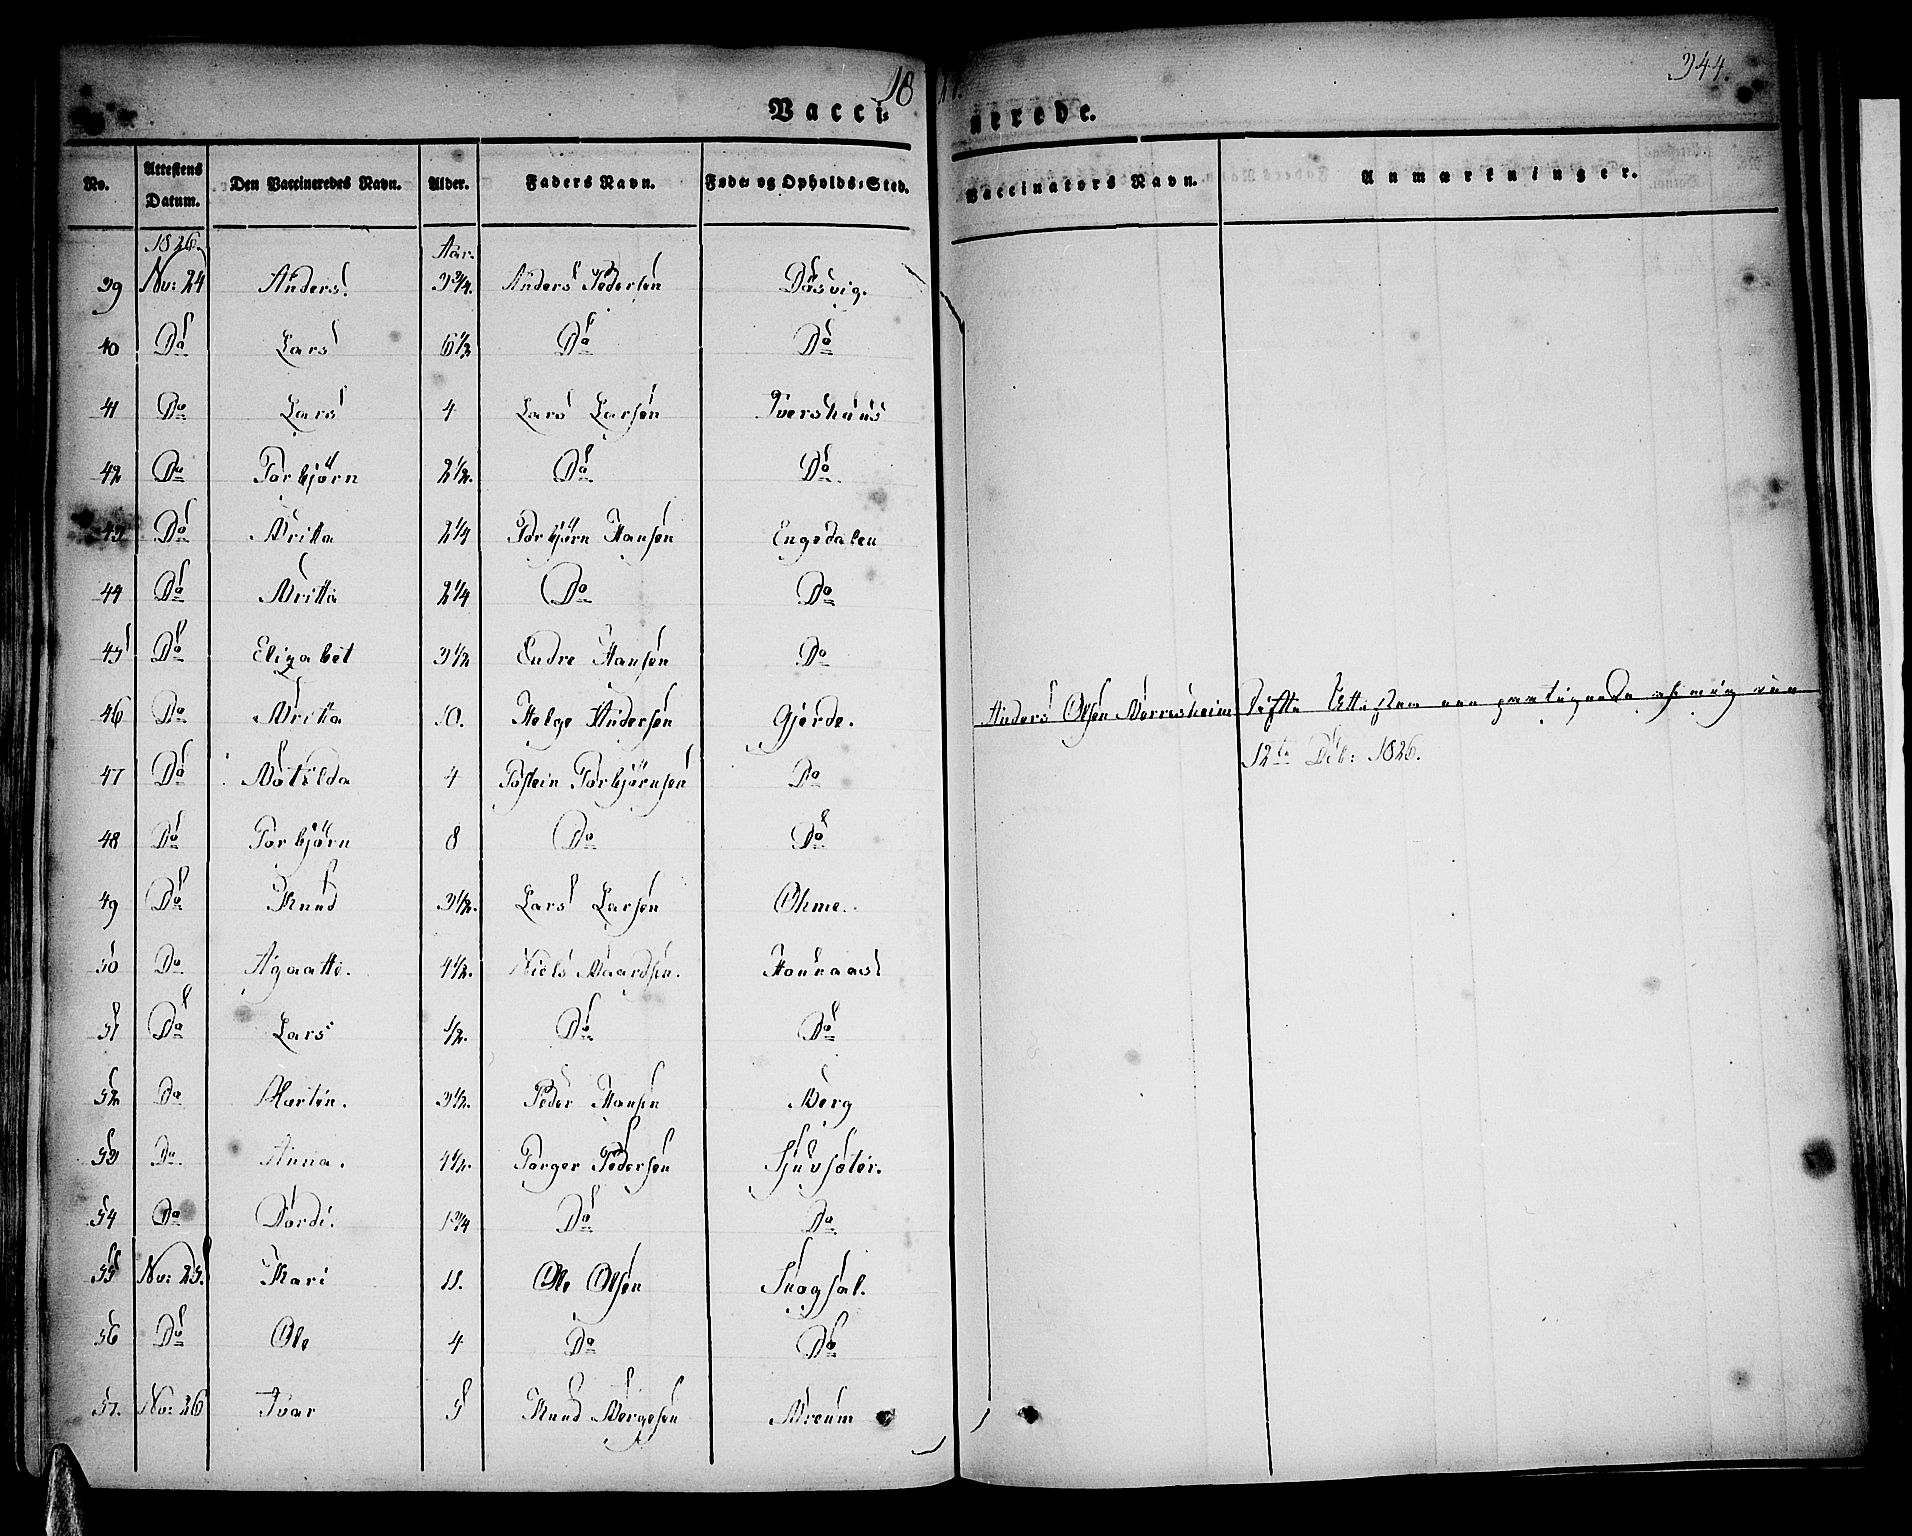 18
344.
Vaccinerede.
No. Attestens Datum. Den Vaccineredes Navn. Alder. Faders Navn. Føde- og Opholds-Sted. Vaccinators Navn. Anmærkninger.
1826. Aar.
39 Nv: 24 Anders. 3 3/4. Anders Pedersen Døsvig.
40 Do Lars 6 1/2 Do Do
41 Do Lars 4 Lars Larsen Tvershaus
42 Do Torbjørn 2 1/2. Do Do.
43 Do Britta 2 1/4 Torbjørn Hansen Engedalen
44 Do Britta 2 1/4 Do Do
45 Do Elizabet 3 1/2 Endre Hansen Do
46 Do Britta 10. Helge Andersen Gjerde. Anders Olsen Berresheim
12te 1826.
47 Do Botilda 4 Tostein Torbjørnsen Do
48 Do Torbjørn 8 Do Do
49 Do Knud 3 1/2. Lars Larsen Ohme.
50 Do Agaatte. 4 1/2. Niels Baardsen. Honnaas
51 Do Lars 1/2. Do Do
52 Do Marten. 3 1/2. Peder Hansen Berg
53 Do Anna. 4 1/2. Torger Pedersen Sjusæter.
54 Do Dordi. 1 3/4 Do Do
55 Nv: 25. Kari 11. Ole Olsen Skogsæl.
56 Do Ole 4 Do Do
57. Nv: 26 Ivar 5 Knud Børgesen Breum